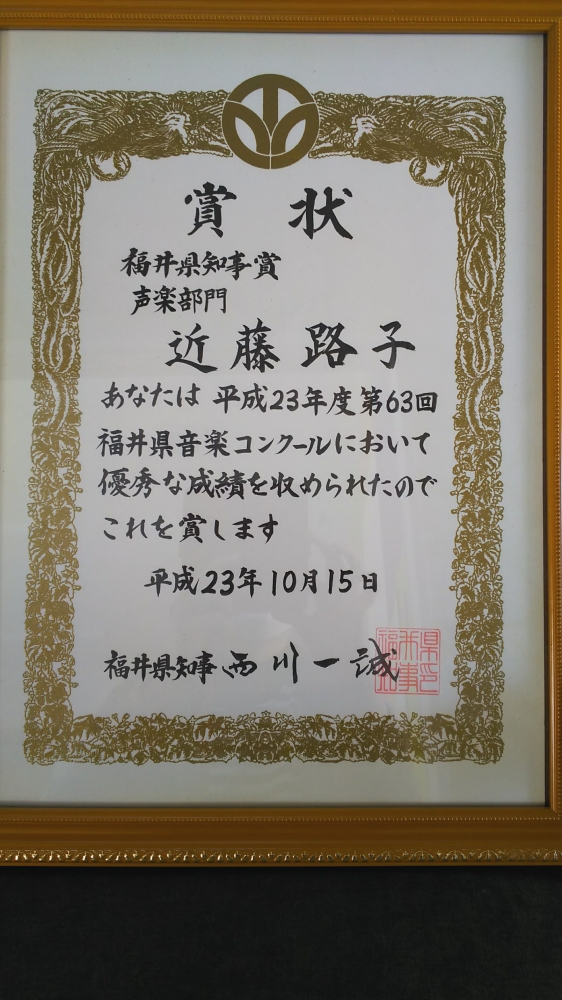 賞状
福井県知事賞
声楽部門
近藤路子
あなたは 平成23年度第63回
福井県音楽コンクールにおいて
優秀な成績を収められたので
これを賞します
平成23年10月15日
福井県知事 西川一誠